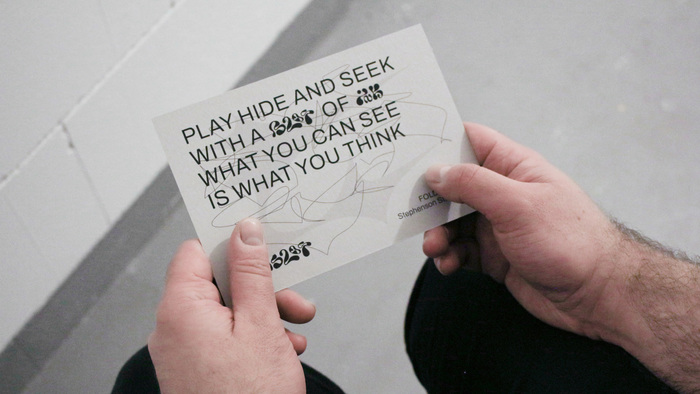 PLAY HIDE AND SEEK
WITH A OF
WHAT YOU CAN SEE
IS WHAT YOU THINK
Stephenson